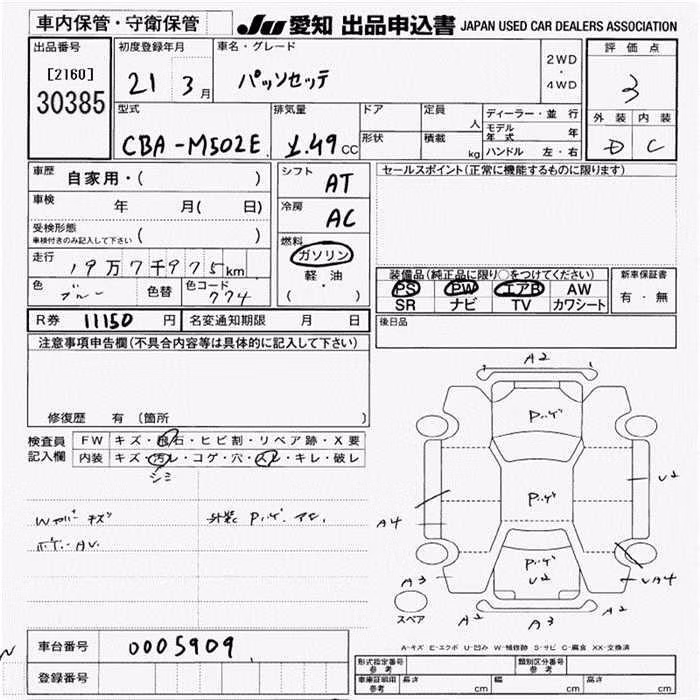 車内保管・守衛保管
JU 愛知 出品申込書 JAPAN USED CAR DEALERS ASSOCIATION
出品番号
[2160]
30385
初度登録年月
21 3月
車名・グレード
パッソセッテ
2WD
・
4WD
評価点
3
外装 内装
D C
型式
CBA-M502E
排気量
1.49cc
ドア
形状
定員
人
積載
kg
ディーラー・並行
モデル年式 年
ハンドル 左・右
車歴
自家用・( )
車検
年 月( 日)
受検形態
車検付きのみ記入して下さい ( )
走行
19万7千975km
色
ブルー
色替
色コード
774
シフト
AT
冷房
AC
燃料
ガソリン
軽油
( ・ )
セールスポイント(正常に機能するものに限ります)
装備品(純正品に限り○をつけてください)
PS PW エアB AW
SR ナビ TV カワシート
新車保証書
有・無
後日品
R券 11150 円
名変通知期限 月 日
注意事項申告欄(不具合内容等は具体的に記入して下さい)
修復歴 有 〔箇所 〕
検査員
記入欄
FW キズ・飛石・ヒビ割・リペア跡・X要
内装 キズ・汚レ・コゲ・穴・スレ・キレ・破レ
シミ
キズ
外装
A2
Pハゲ
Pハゲ
Pハゲ
U2
U2
A4
A3
A2
A3
A2
UA4
スペア
A-キズ E-エクボ U-凹み W-補修跡 S-サビ C-腐食 XX-交換済
車台番号
0005909
登録番号
形式指定番号
参考
類別区分番号
参考
車庫証明用
参考
長さ cm
幅 cm
高さ cm